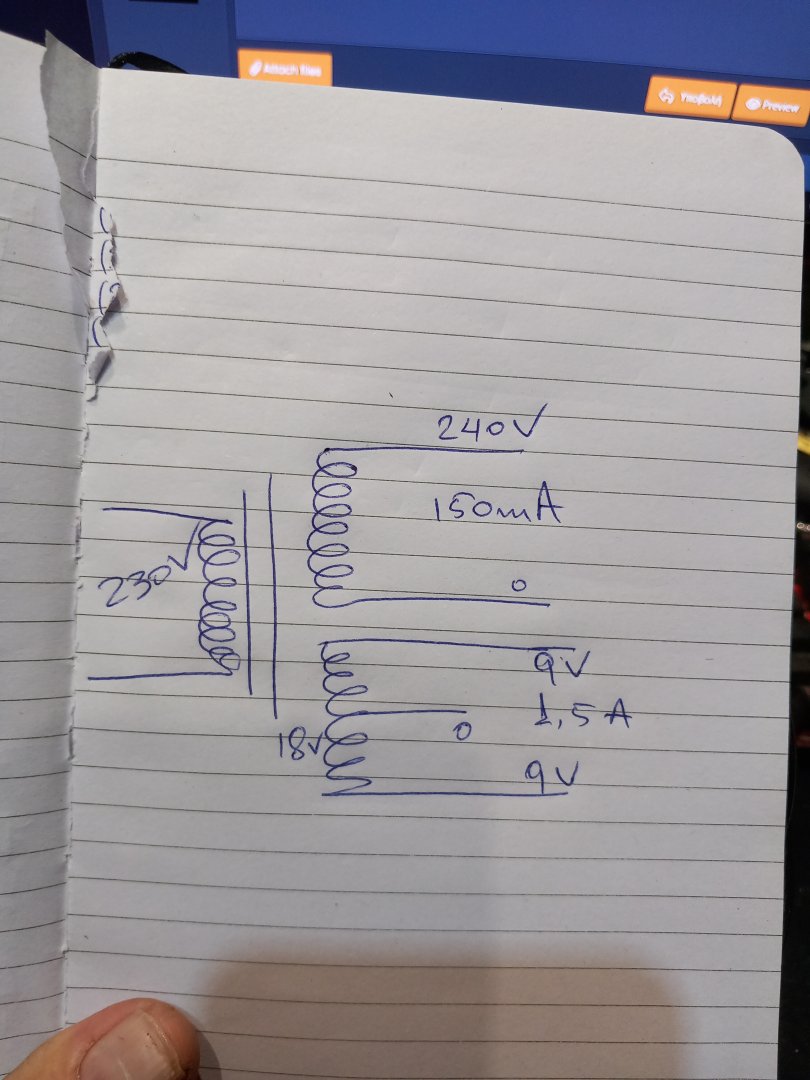 Attach files
Υποβολή
Preview
240V
150mA
0
230V
9V
1,5 A
0
18V
9V